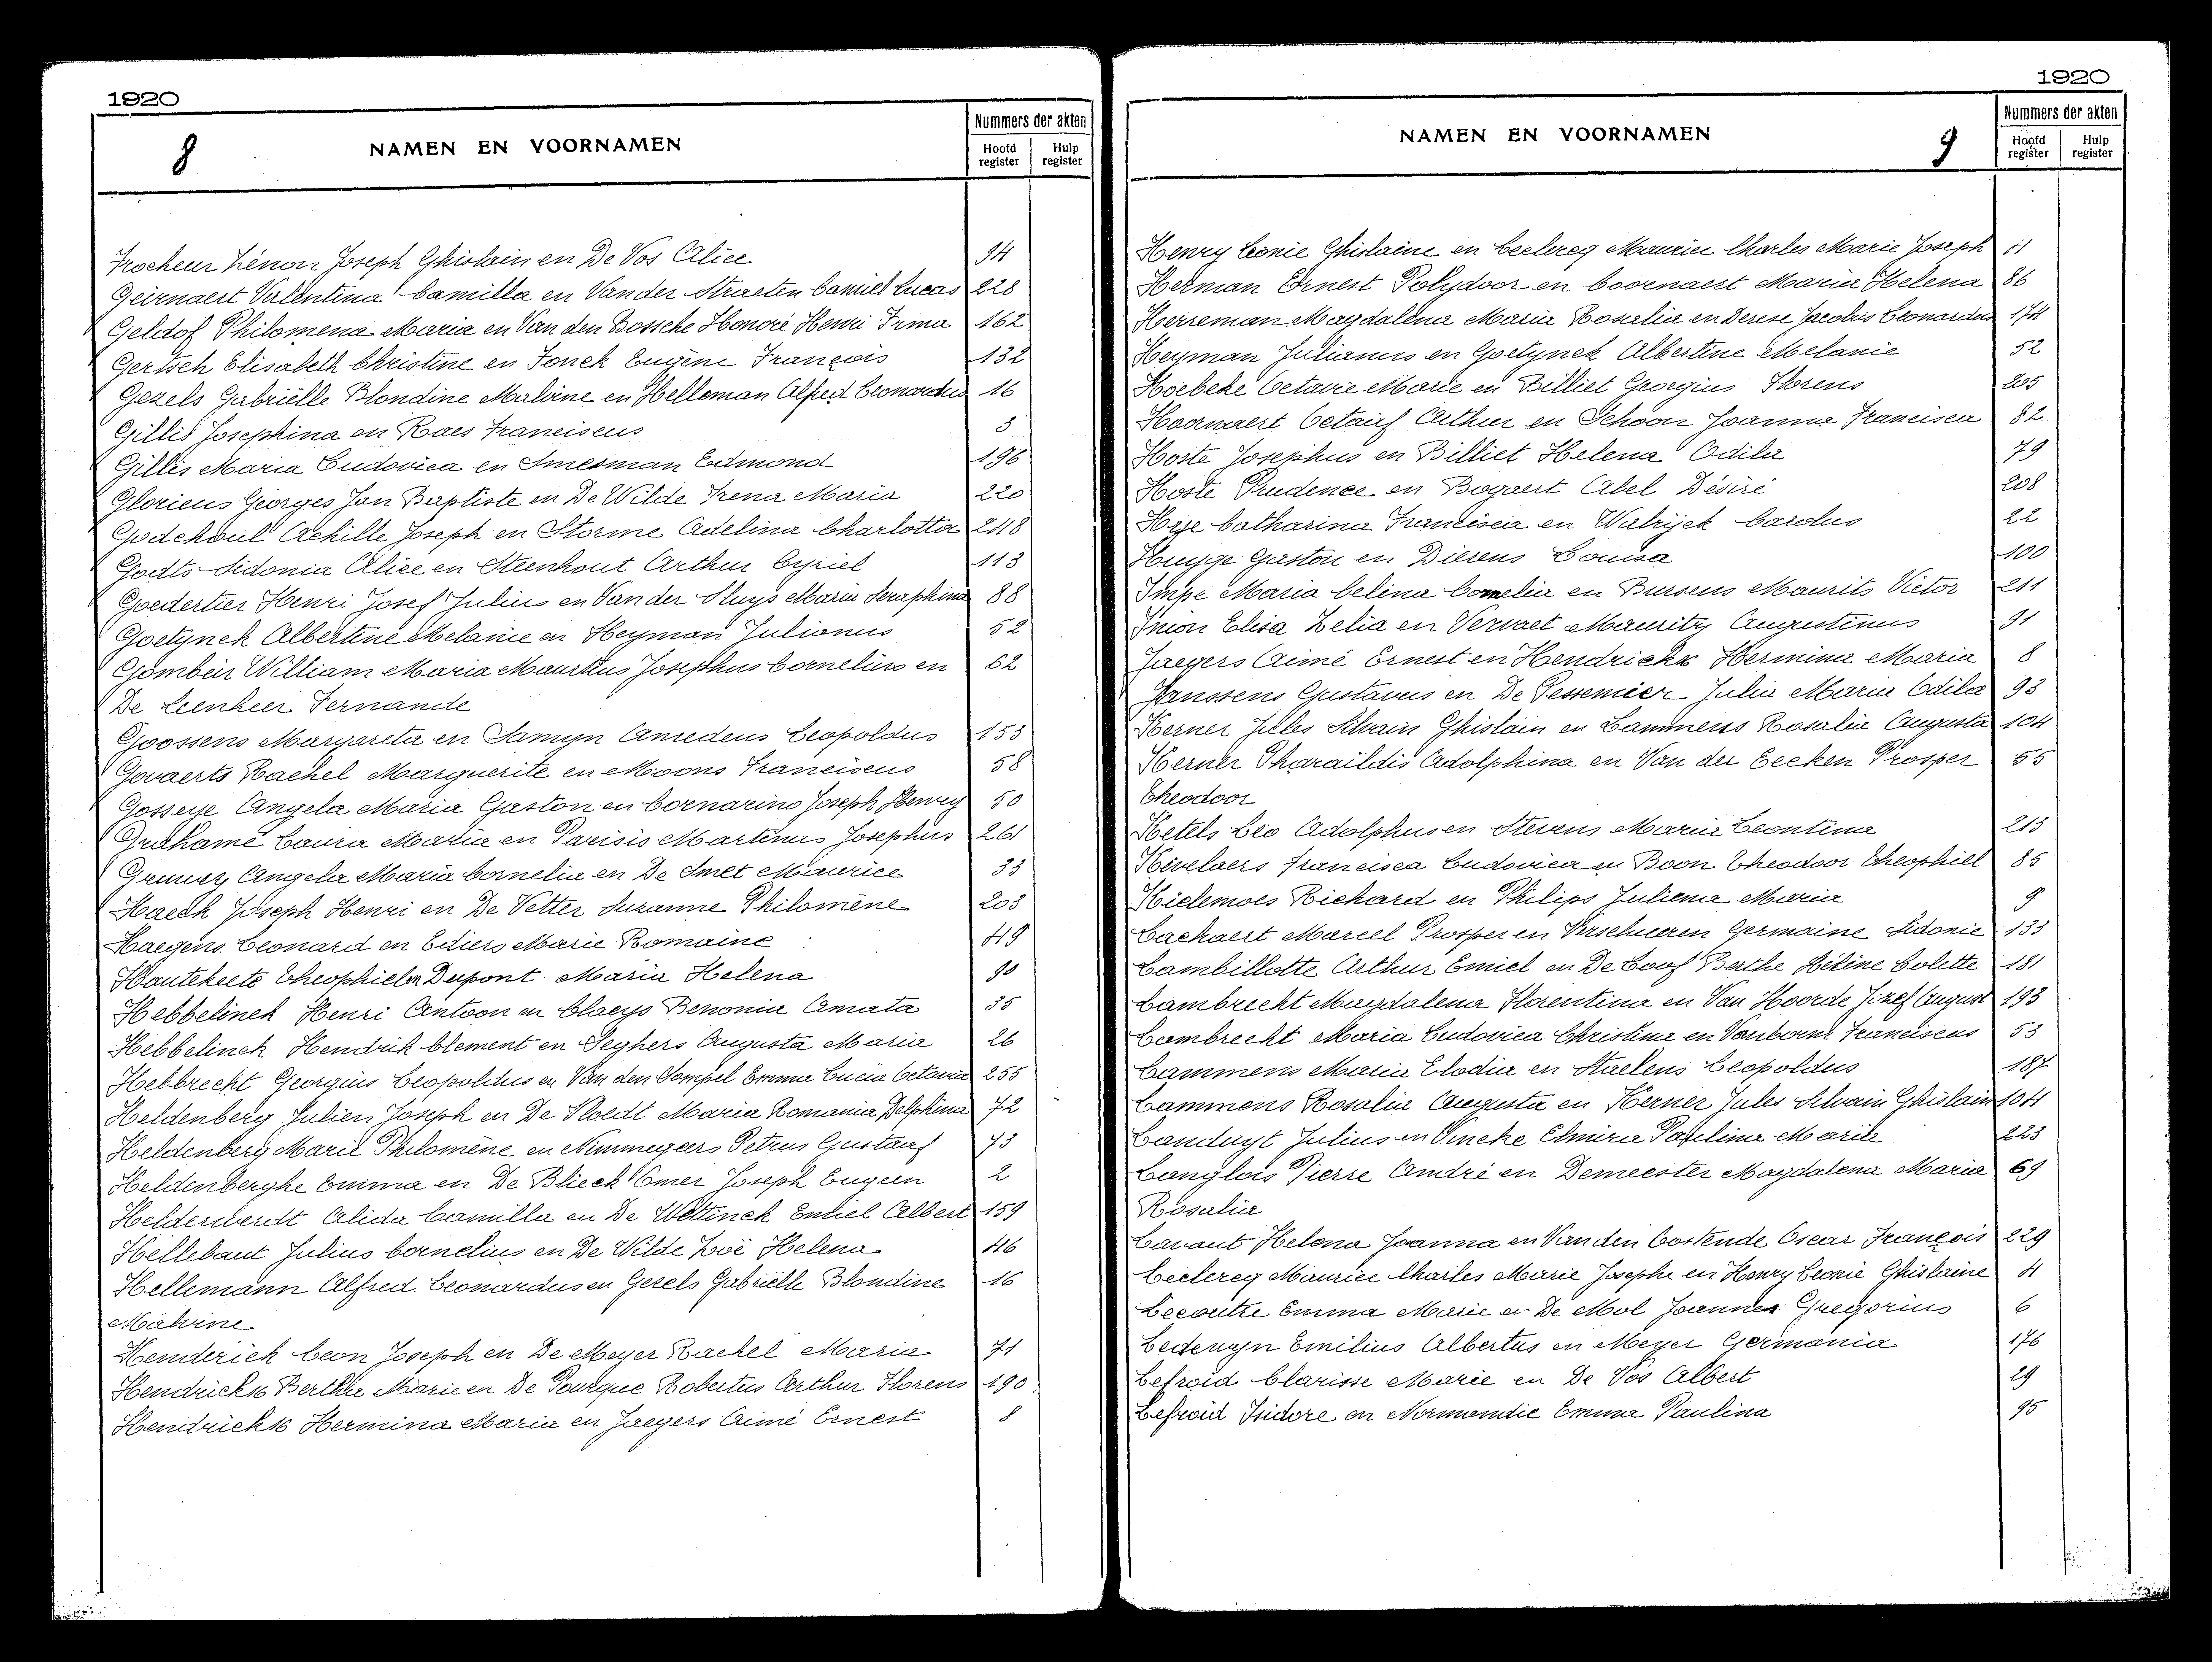 1920
8
NAMEN EN VOORNAMEN
Nummers der akten
Hoofd register
Hulp register
Frocheur Zénon Joseph Ghislain en De Vos Alice 94
Geirnaert Valentina Camilla en Van der Straeten Camiel Lucas 228
Geldof Philomena Maria en Van den Bossche Honoré Henri Irma 162
Gertsch Elisabeth Christine en Fonck Eugène François 132
Gezels Gabriëlle Blondine Malvine en Helleman Alfred Leonardus 16
Gillis Josephina en Raes Franciscus 3
Gillis Maria Ludovica en Smesman Edmond 196
Glorieus Georges Jan Baptiste en De Wilde Irena Maria 220
Godchoul Achille Joseph en Storme Adelina Charlotta 248
Godts Sidonia Alice en Steenhout Arthur Cyriel 113
Goedertier Henri Josef Julius en Van der Sluys Maria Seraphina 88
Goetynck Albertine Melanie en Heyman Julianus 52
Gombeir William Maria Mauritius Josephus Cornelius en 62
De Leenheer Fernande
Goossens Margareta en Samyn Amedeus Leopoldus 153
Govaerts Rachel Marguerite en Moons Franciscus 58
Gosseye Angela Maria Gaston en Cornarino Joseph Henry 50
Grahame Laura Maria en Parisis Martinus Josephus 261
Angela Maria Cornelia en De Smet Maurice 33
Haeck Joseph Henri en De Vetter Suzanne Philomène 203
Haegens Leonard en Ediers Marie Romaine 49
Hautekeete Theophiel en Dupont Maria Helena 90
Hebbelinck Henri Antoon en Claeys Benonia Amata 35
Hebbelinck Hendrik Clement en Seghers Augusta Maria 26
Hebbrecht Georgius Leopoldus en Van den Sompel Emma Lucia Octavia 255
Heldenberg Julien Joseph en De Vloedt Maria Romania Delphina 72
Heldenberg Marie Philomène en Nimmegeers Petrus Gustaaf 73
Heldenberghe Emma en De Blieck Omer Joseph Eugeen 2
Helderweirdt Alida Camilla en De Wettinck Emiel Albert 159
Hellebaut Julius Cornelius en De Wilde Zoë Helena 46
Hellemann Alfred Leonardus en Gezels Gabriëlle Blondine 16
Malvine
Henderick Leon Joseph en De Meyer Rachel Maria 71
Hendrickx Berthe Marie en De Pourque Robertus Arthur Florens 190
Hendrickx Hermina Maria en Jaegers Aimé Ernest 8
1920
NAMEN EN VOORNAMEN
9
Nummers der akten
Hoofd register
Hulp register
Henry Leonie Ghislaine en Leclercq Maurice Charles Marie Joseph 4
Herman Ernest Polydoor en Coornaert Maria Helena 86
Herreman Magdalena Maria Rosalia en Derese Jacobus Leonardus 174
Heyman Julianus en Goetynck Albertine Melanie 52
Hoebeke Octavie Marie en Billiet Georgius Florens 205
Hoornaert Octaaf Arthur en Schoon Joanna Francisca 82
Hoste Josephus en Billiet Helena Odila 79
Hoste Prudence en Bogaert Abel Désiré 208
Huye Catharina Francisca en Walrijck Carolus 22
Huyge Gaston en Dierens Louisa 100
Impe Maria Celina Cornelia en Bursens Maurits Victor 211
Inion Elisa Zelia en Vervaet Maurits Augustinus 91
Jaegers Aimé Ernest en Hendrickx Hermina Maria 8
Janssens Gustavus en De Pessemier Julia Maria Odila 93
Kerner Jules Silvain Ghislain en Lammens Rosalia Augusta 104
Kerner Pharaïldis Adolphina en Van der Eecken Prosper 55
Theodoor
Ketels Leo Adolphus en Stevens Maria Leontina 213
Kevelaers Francisca Ludovica en Boon Theodoor Theophiel 85
Kielemoes Richard en Philips Juliena Maria 9
Lachaert Marcel Prosper en Verschueren Germaine Sidonie 133
Lambillotte Arthur Emiel en De Loof Berthe Hélène Colette 181
Lambrecht Magdalena Florentina en Van Hoorde Jozef August 193
Lambrecht Maria Ludovica Christina en Vanborne Franciscus 53
Lammens Maria Elodia en Staelens Leopoldus 187
Lammens Rosalia Augusta en Kerner Jules Silvain Ghislain 104
Landuyt Julius en Vincke Elmira Paulina Marie 223
Langlois Pierre André en Demeester Magdalena Maria 69
Rosalia
Lavaut Helena Joanna en Van den Oostende Oscar François 229
Leclercq Maurice Charles Marie Josephe en Henry Leonie Ghislaine 4
Lecoutre Emma Marie en De Mol Joannes Gregorius 6
Ledewyn Emilius Albertus en Meyer Germania 176
Lefroid Clarisse Marie en De Vos Albert 29
Lefroid Isidore en Normandie Emma Paulina 95